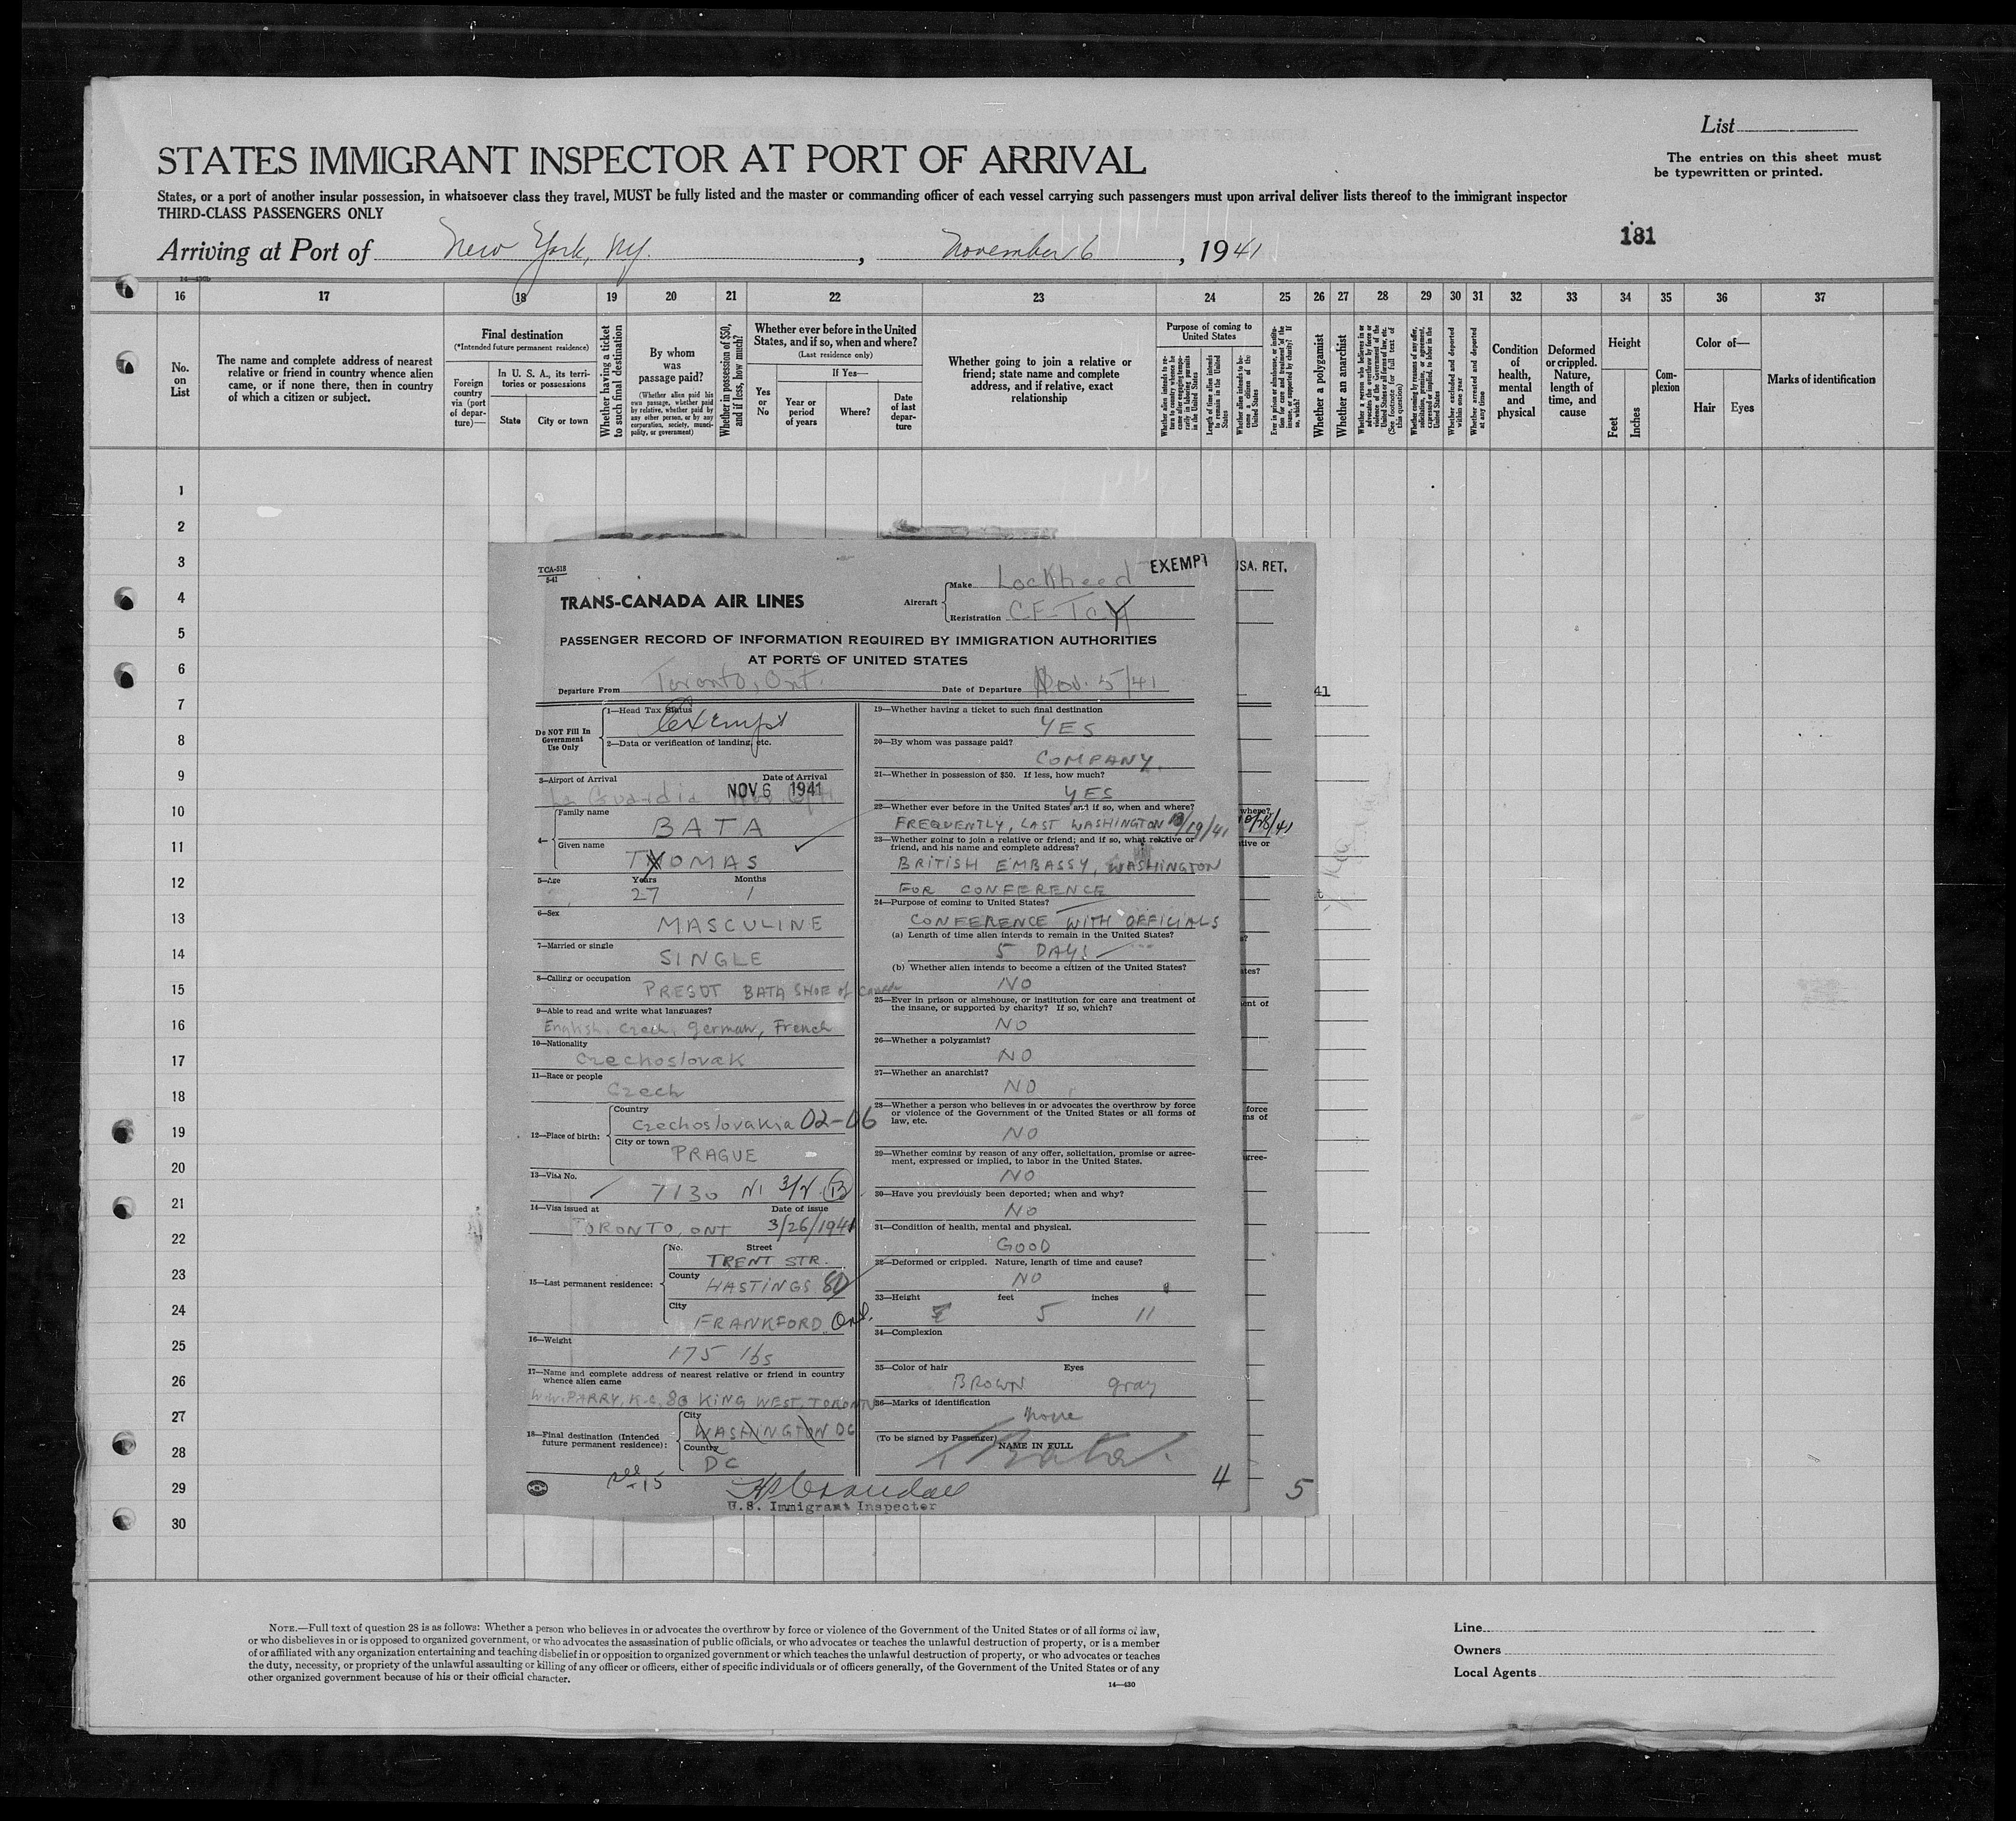 List
STATES IMMIGRANT INSPECTOR AT PORT OF ARRIVAL
The entries on this sheet must
be typewritten or printed.
States, or a port of another insular possession, in whatsoever class they travel, MUST be fully listed and the master or commanding officer of each vessel carrying such passengers must upon arrival deliver lists thereof to the immigrant inspector
THIRD-CLASS PASSENGERS ONLY
181
Arriving at Port of New York, NY. , November 6 , 1941
16 17 18 19 20 21 22 23 24 25 26 27 28 29 30 31 32 33 34 35 36 37
No.
on
List
The name and complete address of nearest
relative or friend in country whence alien
came, or if none there, then in country
of which a citizen or subject.
Final destination
(*Intended future permanent residence)
Foreign
country
via (port
of depar-
ture)—
In U. S. A., its terri-
tories or possessions
State City or town
Whether having a ticket
to such final destination
By whom
was
passage paid?
(Whether alien paid his
own passage, whether paid
by relative, whether paid by
any other person, or by any
corporation, society, munici-
pality, or government)
Whether in possession of $50,
and if less, how much?
Whether ever before in the United
States, and if so, when and where?
(Last residence only)
Yes
or
No
If Yes—
Year or
period
of years
Where?
Date
of last
depar-
ture
Whether going to join a relative or
friend; state name and complete
address, and if relative, exact
relationship
Purpose of coming to
United States
Whether alien intends to re-
turn to country whence he
came after engaging tempo-
rarily in laboring pursuits
in the United States
Length of time alien intends
to remain in the United
States
Whether alien intends to be-
come a citizen of the
United States
Ever in prison or almshouse, or institu-
tion for care and treatment of the
insane, or supported by charity? If
so, which?
Whether a polygamist
Whether an anarchist
Whether a person who believes in or
advocates the overthrow by force or
violence of the Government of the
United States or all forms of law, etc.
(See footnote for full text of
this question)
Whether coming by reasons of any offer,
solicitation, promise, or agreement,
expressed or implied, to labor in the
United States
Whether excluded and deported
within one year
Whether arrested and deported
at any time
Condition
of
health,
mental
and
physical
Deformed
or crippled.
Nature,
length of
time, and
cause
Height
Feet
Inches
Com-
plexion
Color of—
Hair Eyes
Marks of identification
1
2
3
4
5
6
7
8
9
10
11
12
13
14
15
16
17
18
19
20
21
22
23
24
25
26
27
28
29
30
TCA-518
5-41
EXEMPT
USA. RET.
TRANS-CANADA AIR LINES
Aircraft
Make Lockheed
Registration CF-TCY
PASSENGER RECORD OF INFORMATION REQUIRED BY IMMIGRATION AUTHORITIES
AT PORTS OF UNITED STATES
Departure From Toronto, Ont. Date of Departure Nov. 5/41
Do NOT Fill In
Government
Use Only
1—Head Tax Status
Exempt
2—Data or verification of landing, etc.
3—Airport of Arrival Date of Arrival
La Guardia NOV 6 1941
4— Family name
BATA
Given name
THOMAS
5—Age Years Months
27 1
6—Sex
MASCULINE
7—Married or single
SINGLE
8—Calling or occupation
PRESDT BATA SHOE of Canada
9—Able to read and write what languages?
English, Czech, German, French
10—Nationality
Czechoslovak
11—Race or people
Czech
12—Place of birth: Country
Czechoslovakia 02-06
City or town
PRAGUE
13—Visa No.
7130 NI 3/2 B
14—Visa issued at Date of issue
TORONTO, ONT 3/26/1941
15—Last permanent residence:
No. Street
TRENT STR.
County
HASTINGS 80
City
FRANKFORD Ont.
16—Weight
175 lbs
17—Name and complete address of nearest relative or friend in country
whence alien came
W.W. PARRY, K.C, 80 KING WEST, TORONTO
18—Final destination (Intended
future permanent residence):
City
WASHINGTON DC
Country
DC
19—Whether having a ticket to such final destination
YES
20—By whom was passage paid?
COMPANY.
21—Whether in possession of $50. If less, how much?
YES
22—Whether ever before in the United States and if so, when and where?
FREQUENTLY, LAST WASHINGTON 10/19/41
23—Whether going to join a relative or friend; and if so, what relative or
friend, and his name and complete address?
BRITISH EMBASSY, WASHINGTON
FOR CONFERENCE
24—Purpose of coming to United States?
CONFERENCE WITH OFFICIALS
(a) Length of time alien intends to remain in the United States?
5 DAYS
(b) Whether alien intends to become a citizen of the United States?
NO
25—Ever in prison or almshouse, or institution for care and treatment of
the insane, or supported by charity? If so, which?
NO
26—Whether a polygamist?
NO
27—Whether an anarchist?
NO
28—Whether a person who believes in or advocates the overthrow by force
or violence of the Government of the United States or all forms of
law, etc.
NO
29—Whether coming by reason of any offer, solicitation, promise or agree-
ment, expressed or implied, to labor in the United States.
NO
30—Have you previously been deported; when and why?
NO
31—Condition of health, mental and physical.
GOOD
32—Deformed or crippled. Nature, length of time and cause?
NO
33—Height feet inches
5 11
34—Complexion
35—Color of hair Eyes
BROWN gray
36—Marks of identification
None
(To be signed by Passenger) NAME IN FULL
T Bata.
4
5
U.S. Immigrant Inspector
41
where?
10/28/41
tive or
ates?
ent of
force
ms of
gree-
NOTE.—Full text of question 28 is as follows: Whether a person who believes in or advocates the overthrow by force or violence of the Government of the United States or of all forms of law,
or who disbelieves in or is opposed to organized government, or who advocates the assassination of public officials, or who advocates or teaches the unlawful destruction of property, or is a member
of or affiliated with any organization entertaining and teaching disbelief in or opposition to organized government or which teaches the unlawful destruction of property, or who advocates or teaches
the duty, necessity, or propriety of the unlawful assaulting or killing of any officer or officers, either of specific individuals or of officers generally, of the Government of the United States or of any
other organized government because of his or their official character.
14—430
Line
Owners
Local Agents